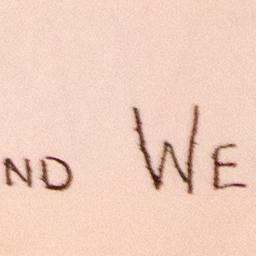 ND WE